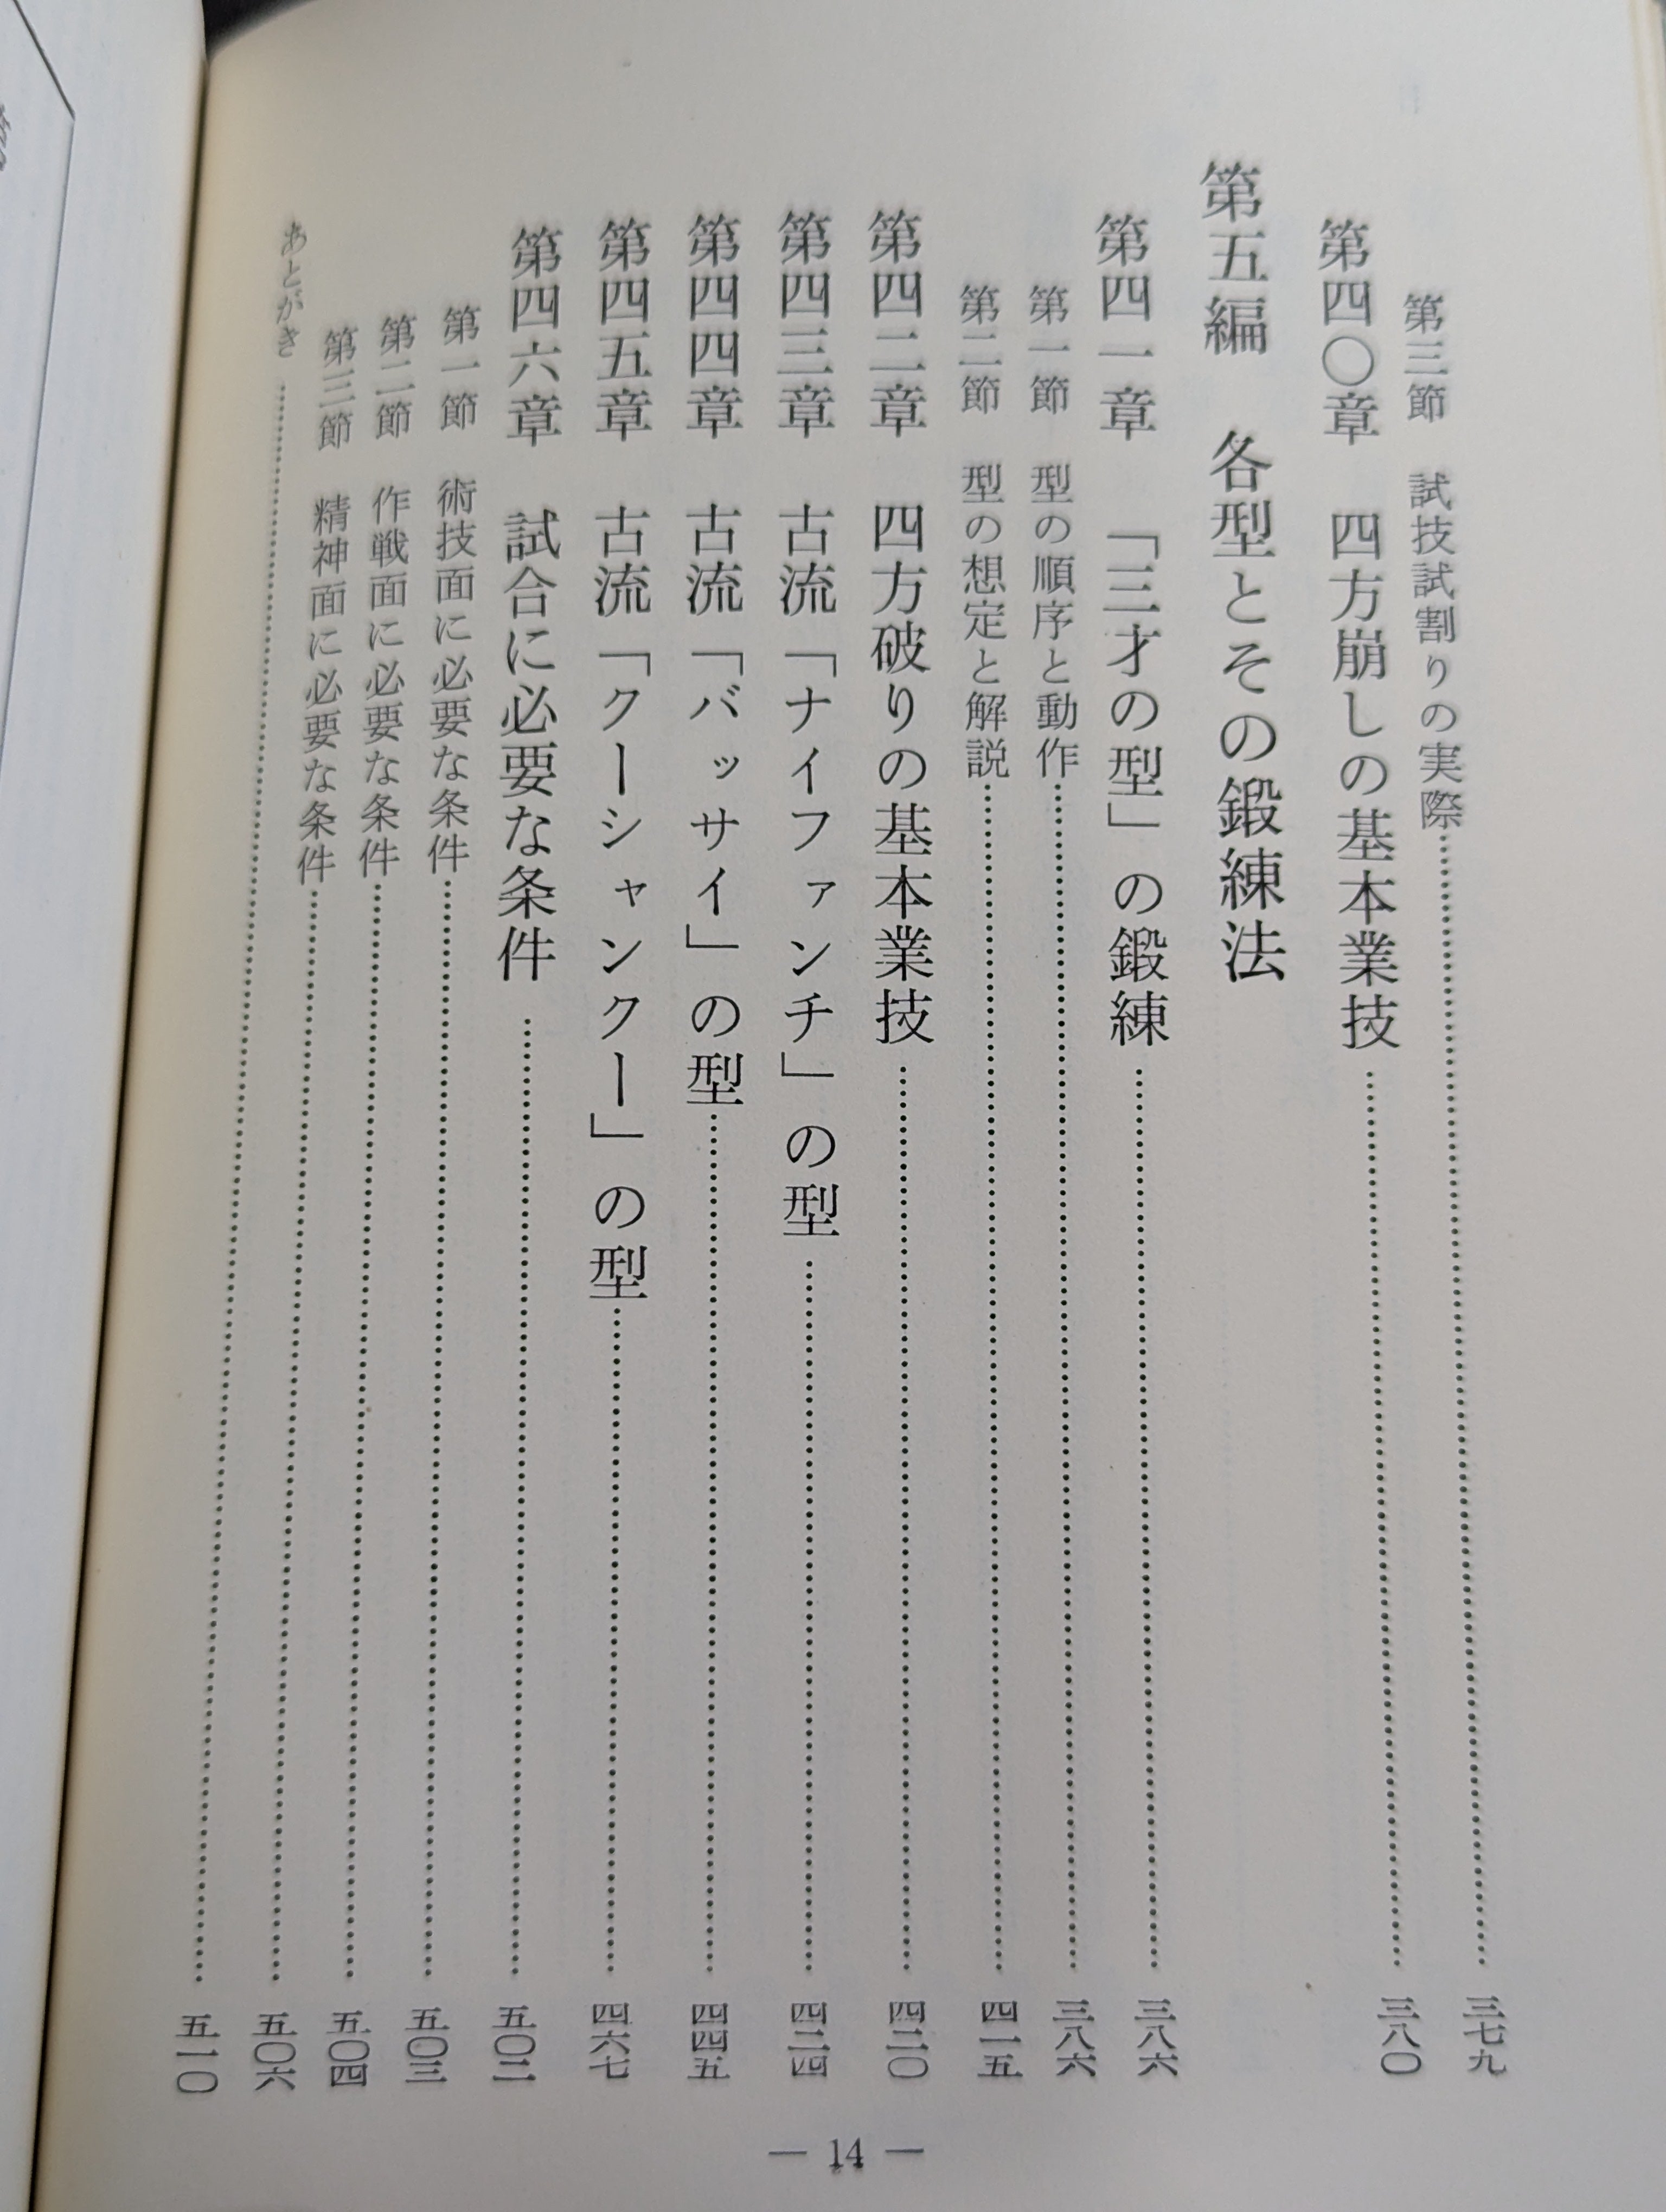 第三節　試技試割りの実際……三七九
第四〇章　四方崩しの基本業技……三八〇
第五編　各型とその鍛練法
第四一章　「三才の型」の鍛練……三八六
第一節　型の順序と動作……三八六
第二節　型の想定と解説……四一五
第四二章　四方破りの基本業技……四二〇
第四三章　古流「ナイファンチ」の型……四二四
第四四章　古流「バッサイ」の型……四四五
第四五章　古流「クーシャンクー」の型……四六七
第四六章　試合に必要な条件……五〇二
第一節　術技面に必要な条件……五〇三
第二節　作戦面に必要な条件……五〇四
第三節　精神面に必要な条件……五〇六
あとがき……五一〇
— 14 —